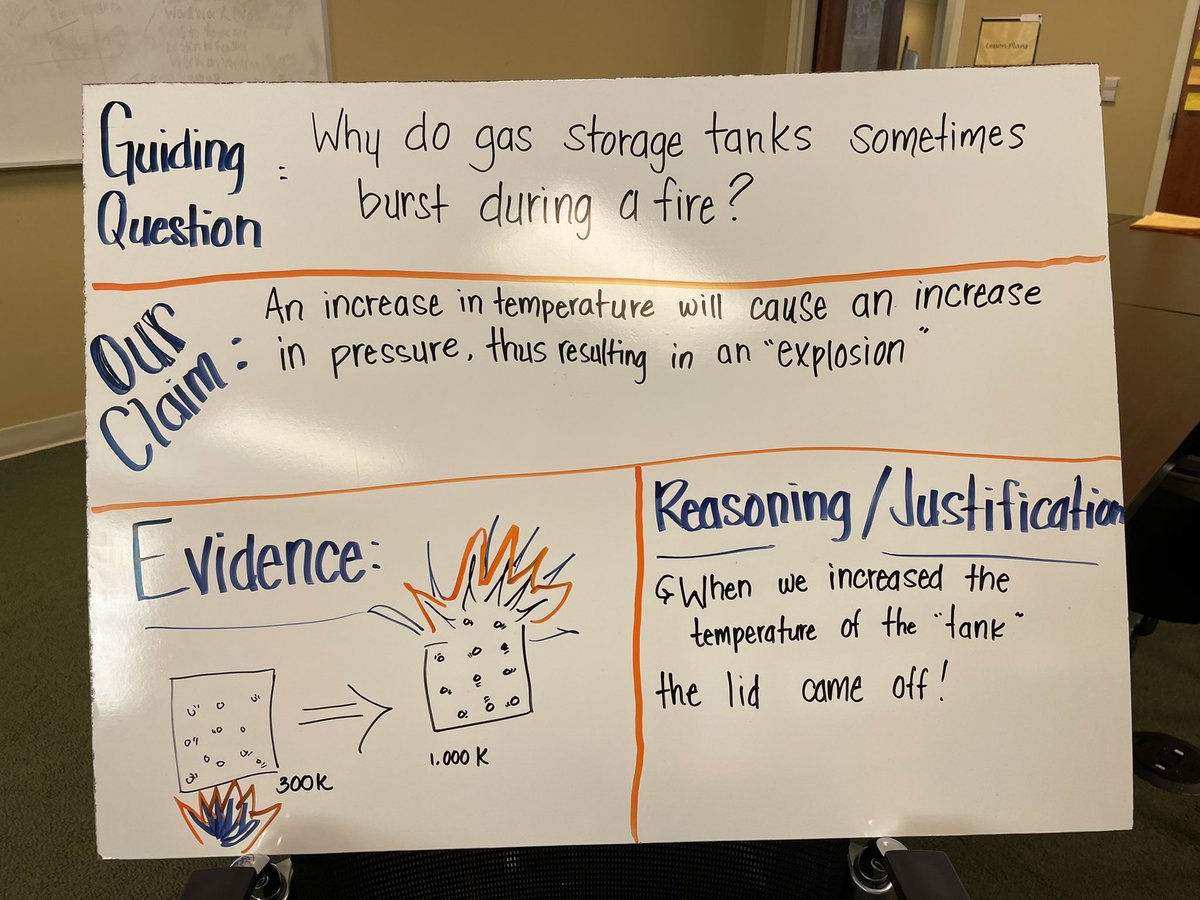 Lesson Plans
Guiding
Question :
Why do gas storage tanks sometimes
burst during a fire?
Our
Claim:
An increase in temperature will cause an increase
in pressure, thus resulting in an "explosion"
Evidence:
300K
1,000 K
Reasoning/Justification
When we increased the
temperature of the "tank"
the lid came off!